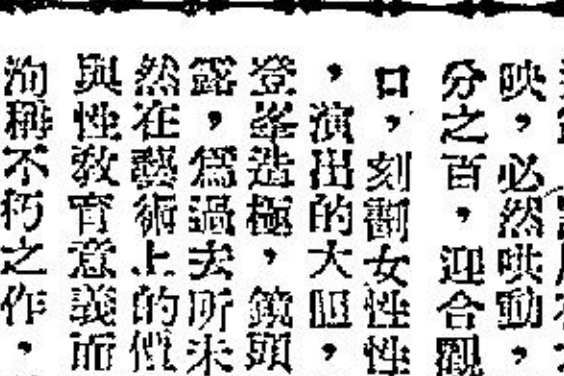 映，必然哄動，
分之百，迎合觀
口，刻劃女性性
，演出的大胆，
登峯造極，鏡頭
露，為過去所未
然在藝術上的價
與性教育意義而
洵稱不朽之作，